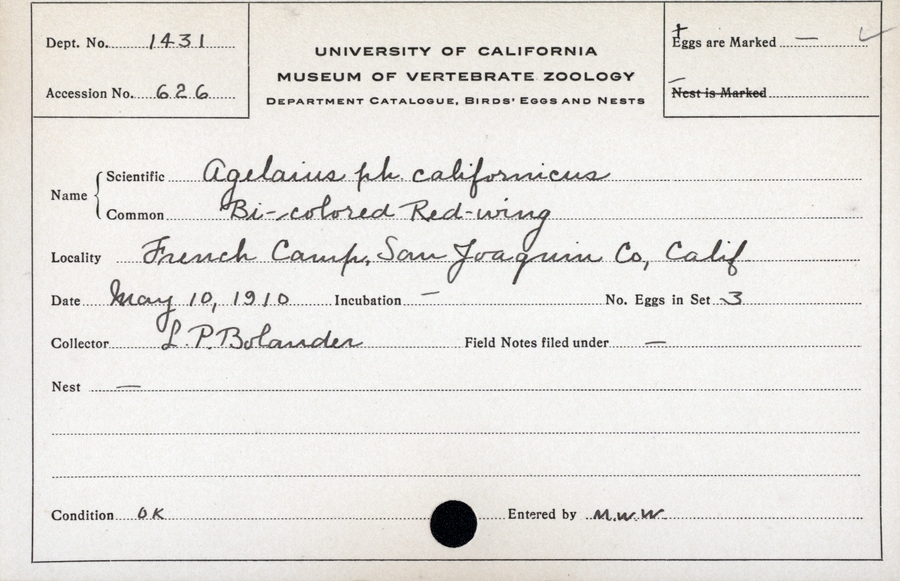 Dept. No. 1431
Accession No. 626
UNIVERSITY OF CALIFORNIA
MUSEUM OF VERTEBRATE ZOOLOGY
DEPARTMENT CATALOGUE, BIRDS' EGGS AND NESTS
Eggs are Marked —
Nest is Marked
Name
Scientific Agelaius ph. californicus
Common Bi-colored Red-wing
Locality French Camp, San Joaquin Co, Calif
Date May 10, 1910 Incubation — No. Eggs in Set 3
Collector L. P. Bolander Field Notes filed under —
Nest —
Condition OK Entered by M.W.W.